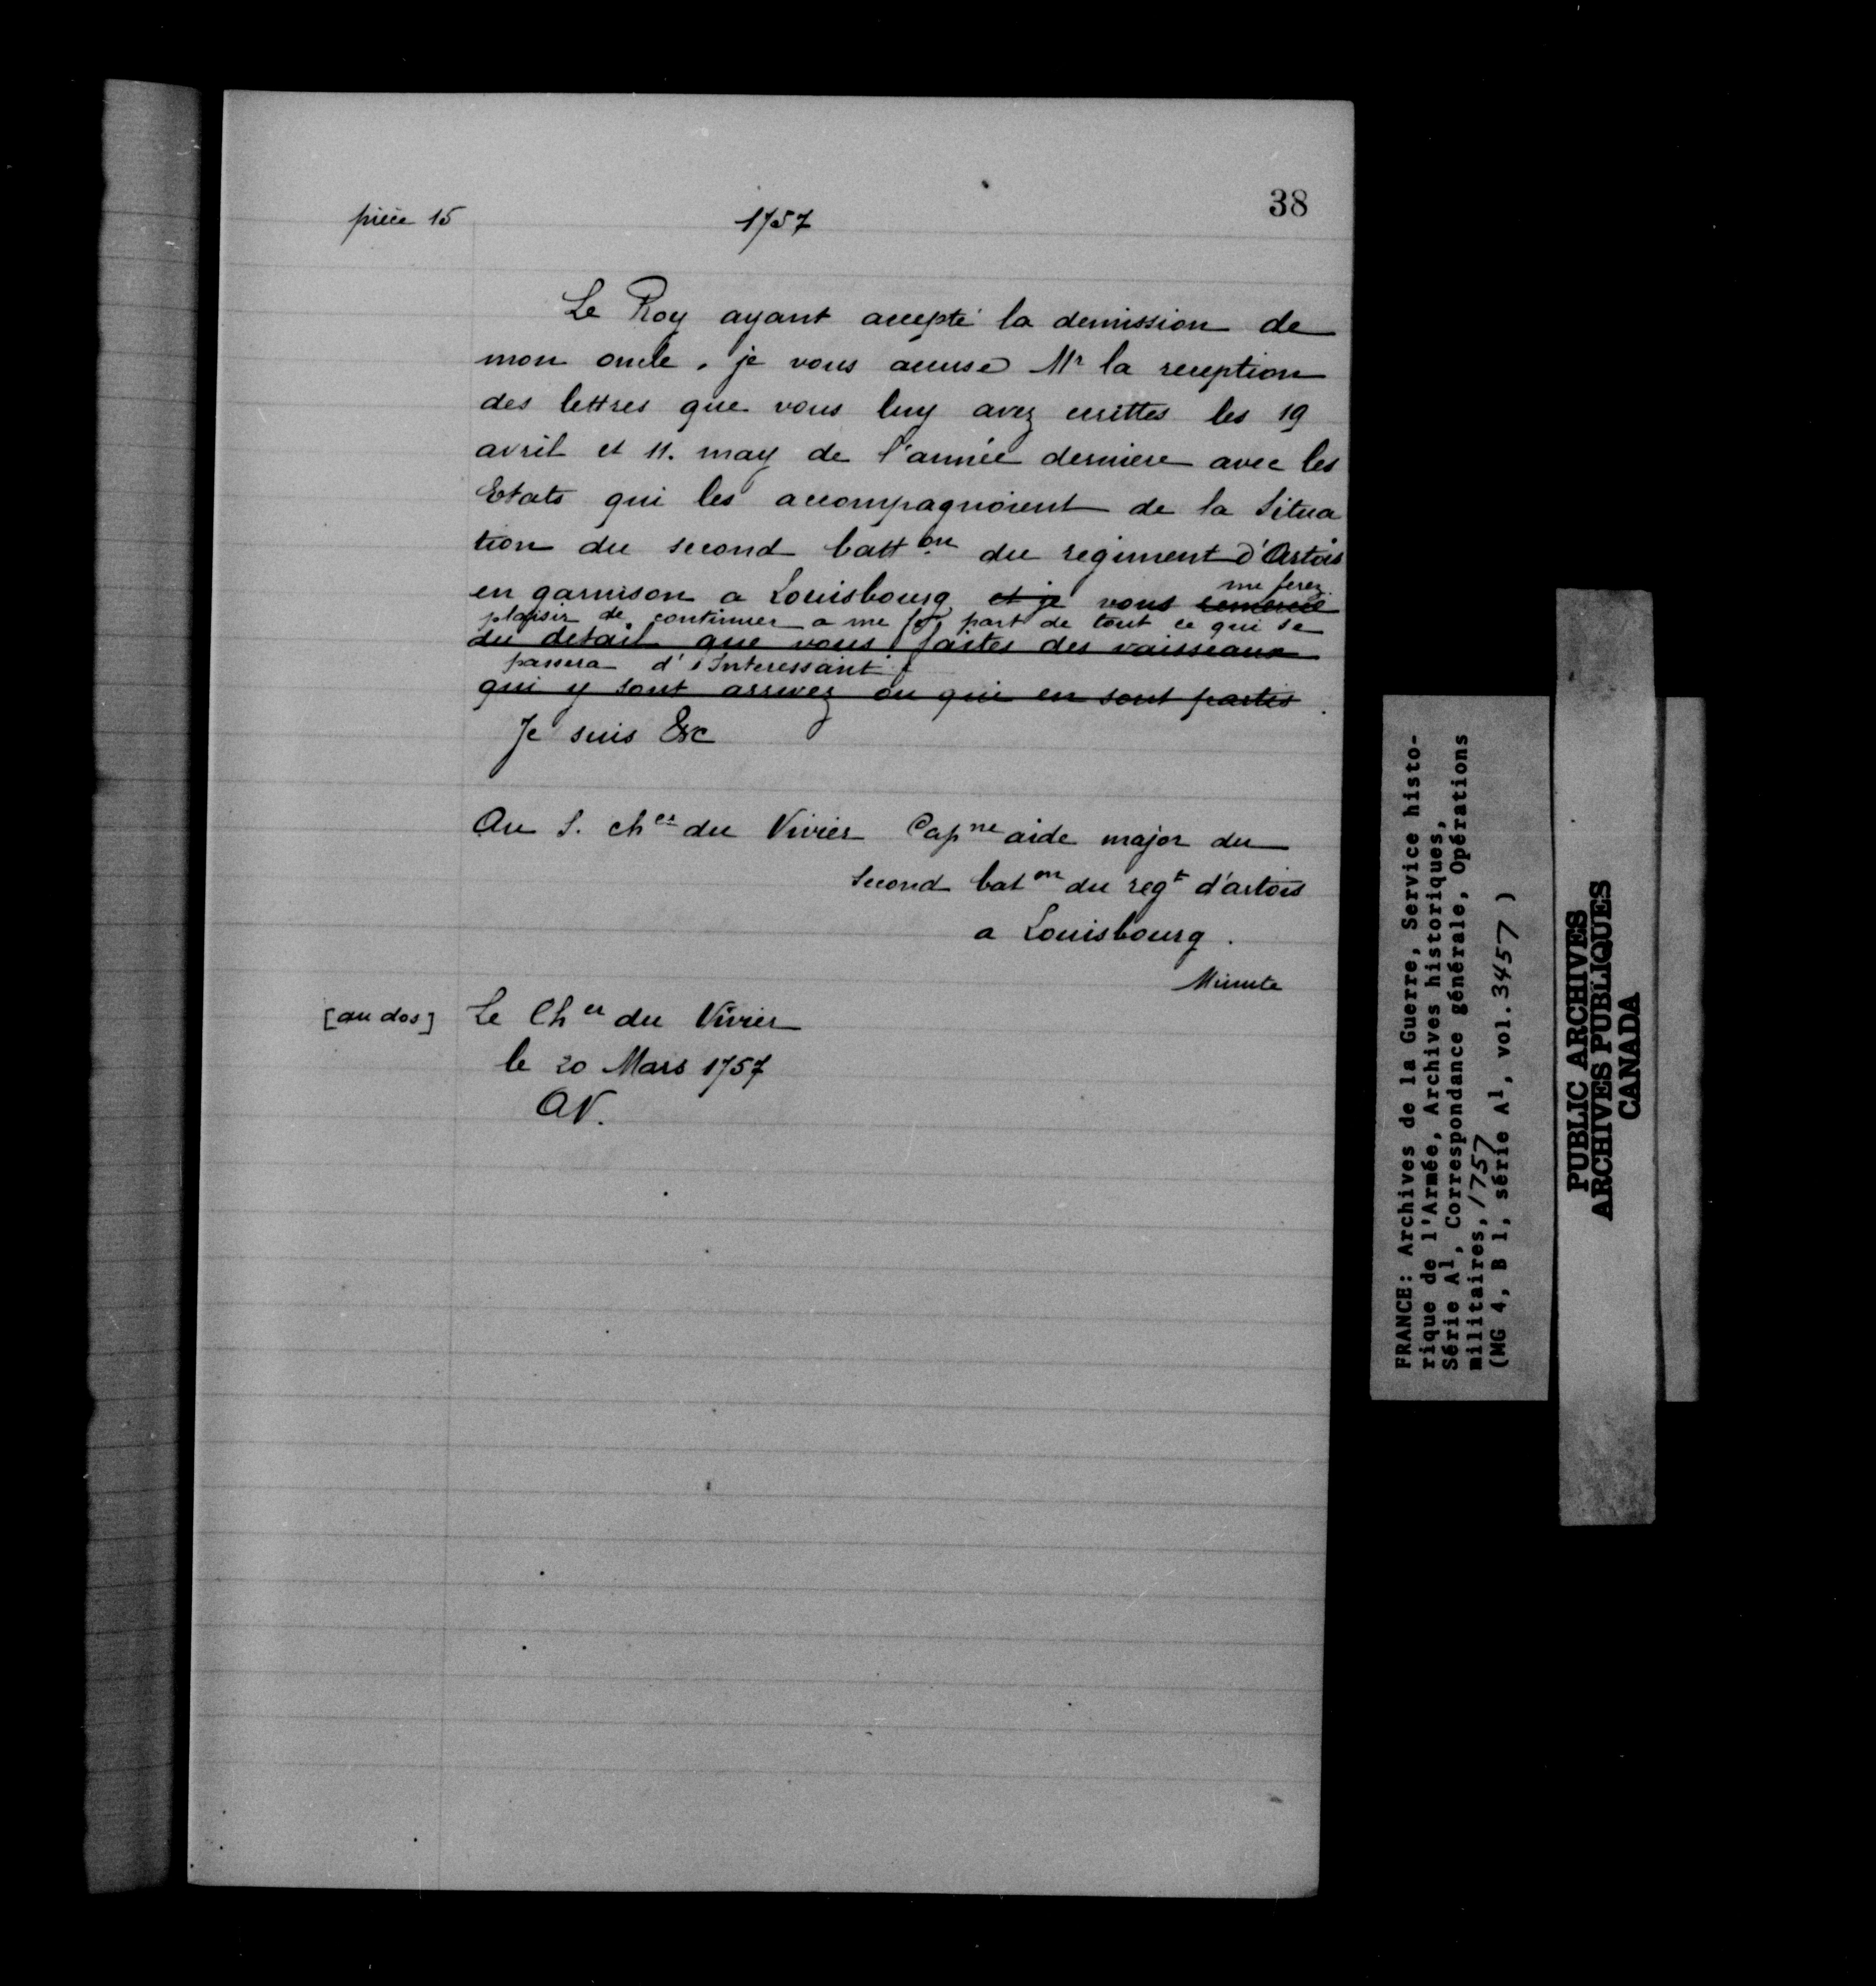 38
pièce 15
1757
Le Roy ayant accepté la demission de
mon oncle, je vous accuse Mr la reception
des lettres que vous luy avez ecrittes les 19
avril et 11. may de l'année derniere avec les
Etats qui les accompagnoient de la Situa
tion du second batton du regiment d'Artois
me ferez
en garnison a Louisbourg et je vous remercie
plaisir de continuer a me fe part de tout ce qui se
du detail que vous faites des vaisseaux
passera d'Interessant
qui y sont arrivez ou qui en sont partis.
Je suis &c
Au S. cher du Vivier Capne aide major du
second baton du regt d'artois
a Louisbourg.
Minute
[au dos] Le Cher du Vivier
le 20 Mars 1757
AV.
FRANCE: Archives de la Guerre, Service histo-
rique de l'Armée, Archives historiques,
Série A1, Correspondance générale, Opérations
militaires, 1757
(MG 4, B 1, série A1, vol. 3457)
PUBLIC ARCHIVES
ARCHIVES PUBLIQUES
CANADA